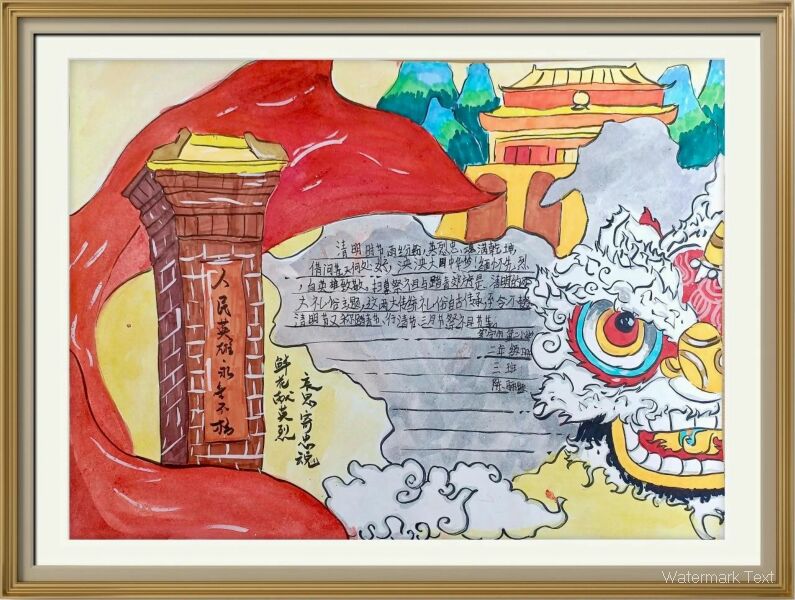 人民英雄永垂不朽
清明时节雨纷纷,英烈忠魂满乾坤,
借问 何处 泱泱大国中华梦!缅怀先烈
,向英雄致敬,扫墓祭祖与踏青郊游是 清明的两
大礼俗主题,这两大传统礼俗自古传承,至今不辍
清明节又称踏青节、行清节、三月节、祭祖节等。
二年级
三班
陈
鲜花献英烈
哀思寄忠魂
Watermark Text